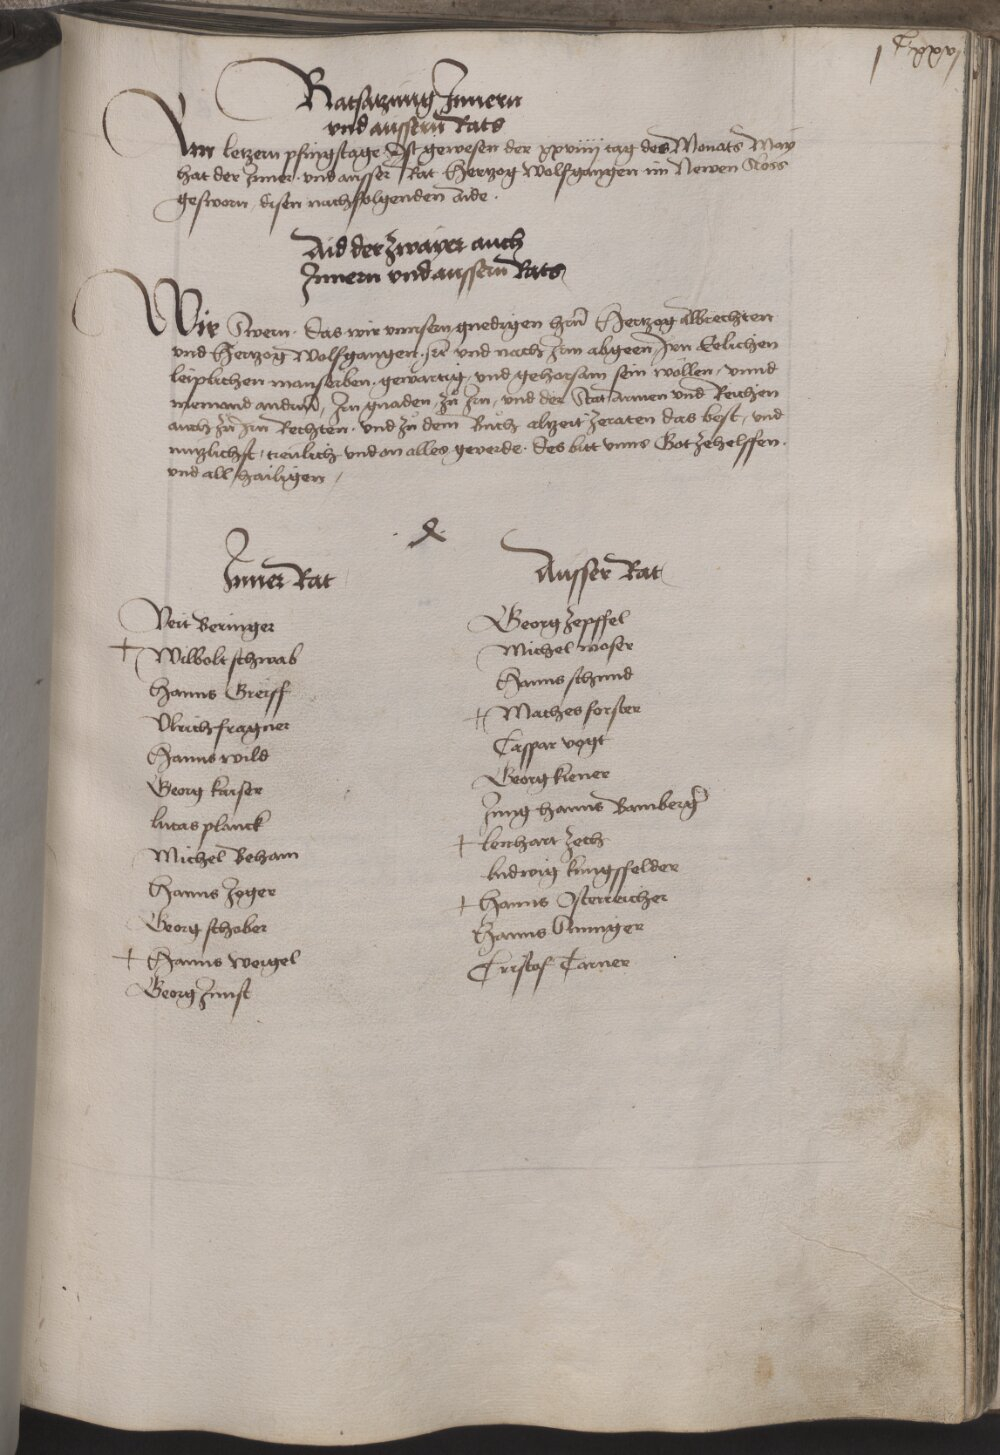 Cxxvj
Ratsatzung Jnnern
vnd aussern Rats
Am letzern pfingstage Ist gewesen der xxviiij tag des Monats May
hat der Jnner vnd ausser Rat Hertzog Wolfgangen im Newen Sloss
gesworn, disen nachfolgenden aide.
Aid der Zwayer auch
Jnnern vnd aussern Rats
Wir Swern. das wir vnnsern gnedigen hrn Hertzog Albrechten
vnd Hertzog Wolfgangen. vnd nach Jrm abgeen, Jrn Eelichen
leiplichen mans erben. gewärtig, vnd gehorsam sein wöllen, vnnd
niemand andern, Jrn gnaden, zu Jrn, vnd der Stat Armen vnd Reichen
auch zu Jrn Rechten. vnd zu dem Buch alzeit zeraten das best, vnd
nutzlichst, treulich vnd on alles geuerde. des bitt vnns Got zehelffen.
vnd all hailigen,
Jnner Rat
Ausser Rat
Veit Beringer
+ Wilbolt schwab
Hanns Greiff
Vlrich fragner
Hanns wild
Georg kaiser
lucas planck
Michel Beham
Hanns Jeger
Georg schober
+ Hanns weigel
Georg Zunst
Georg Zepffel
Michel moser
Hanns schmid
+ Mathes forster
Caspar vogt
Georg kiener
Jung hanns Bamberger
+ lenhart Zech
ludwig kungsfelder
+ Hanns Osterreicher
Hanns Aninger
Cristof Tarner